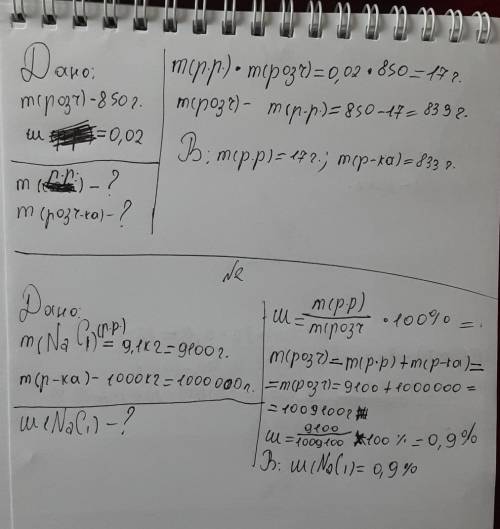 Дано:
m(розч) - 850 г.
ω = 0,02
m(р.р.) - ?
m(розч-ка) - ?
m(р.р.) • m(розч) = 0,02 • 850 = 17 г.
m(розч) - m(р.р.) = 850 - 17 = 839 г.
В: m(р.р) = 17 г.; m(р-ка) = 833 г.
№2
Дано:
m(NaCl)(р.р.) = 9,1 кг = 9100 г.
m(р-ка) - 1000 кг = 1000000 г.
ω(NaCl) - ?
ω = m(р.р) / m(розч • 100% =
m(розч) = m(р.р) + m(р-ка) =
= m(розч) = 9100 + 1000000 =
= 1009100 г
ω = 9100/1009100 • 100 % = 0,9%
В: ω(NaCl) = 0,9%